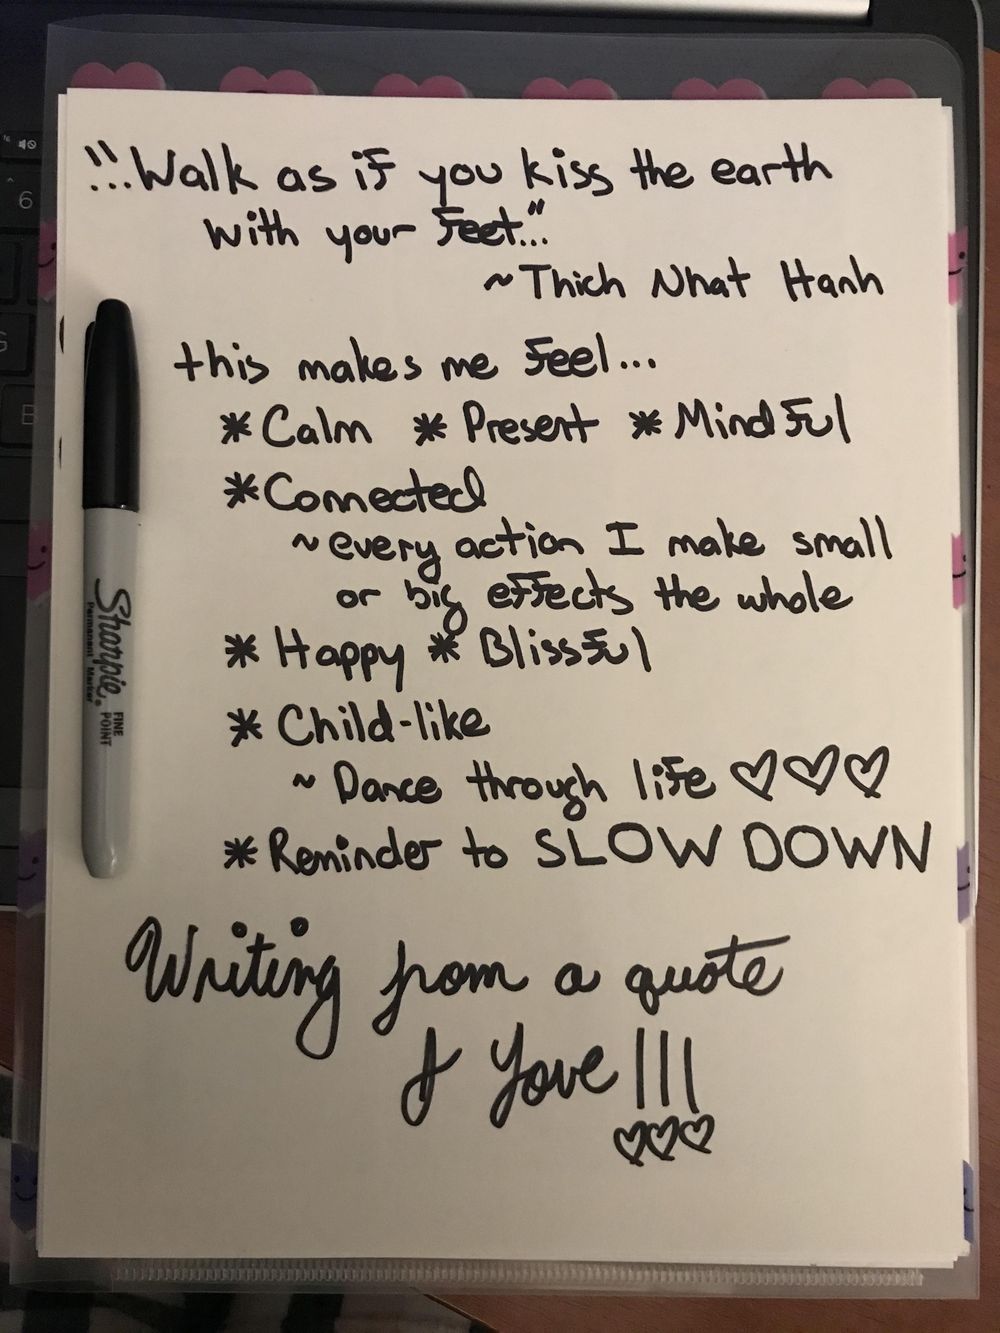 "...Walk as if you kiss the earth
with your feet..."
~Thich Nhat Hanh
this makes me feel...
* Calm * Present * Mindful
* Connected
~every action I make small
or big effects the whole
* Happy * Blissful
* Child-like
~ Dance through life ♡♡♡
* Reminder to SLOW DOWN
Writing from a quote
I love!!!
♡♡♡
Sharpie.
FINE POINT
Permanent Marker
6
G
B